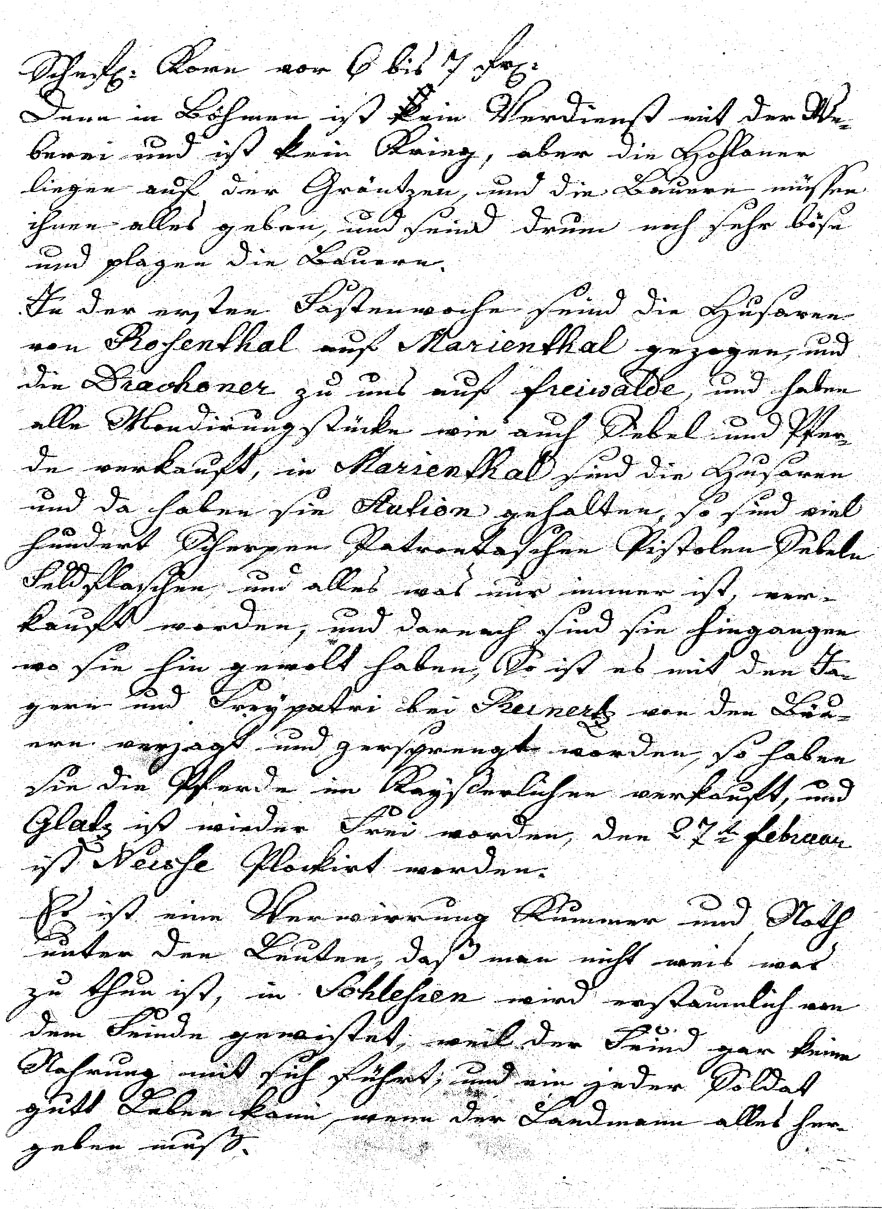 Scheff: Korn vor 6 bis 7 Fr:
Denn in Böhmen ist kein Verdienst mit der We-
berei und ist kein Krieg, aber die Hohlaner
liegen auf der Gräntzen, und die Bauern müssen
ihnen alles geben, und seind drum noch sehr böse
und plagen die Bauern.
In der ersten Fastenwoche seind die Husaren
von Rosenthal auf Marienthal gezogen, und
die Drachoner zu uns auf freiwalde, und haben
alle Mondirungsstücke wie auch Sebel und Pfer-
de verkauft, in Marienthal sind die Husaren
und da haben sie Aution gehalten, so sind viel
hundert Scherpen Patrontaschen Pistolen Sebeln
Feldflaschen und alles was nur immer ist, ver-
kauft worden, und darnach sind sie hingangen
wo sie hin gewolt haben, So ist es mit den Jä-
gern und Freypatri bei Reinertz von den Beu-
ern verjagt und zersprengt worden, so haben
sie die Pferde im Kayserlichen verkauft, und
Glatz ist wieder Frei worden, den 27t februar
ist Neisse Plockirt worden.
Es ist eine Verwirrung Kummer und Noth
unter den Leuten, daß man nicht weis was
zu thun ist, in Schlesien wird erstaunlich von
dem Feinde gewistet, weil der Feind gar keine
Nahrung mit sich führt, und ein jeder Soldat
gutt Leben kann, wenn der Landmann alles her-
geben muß.